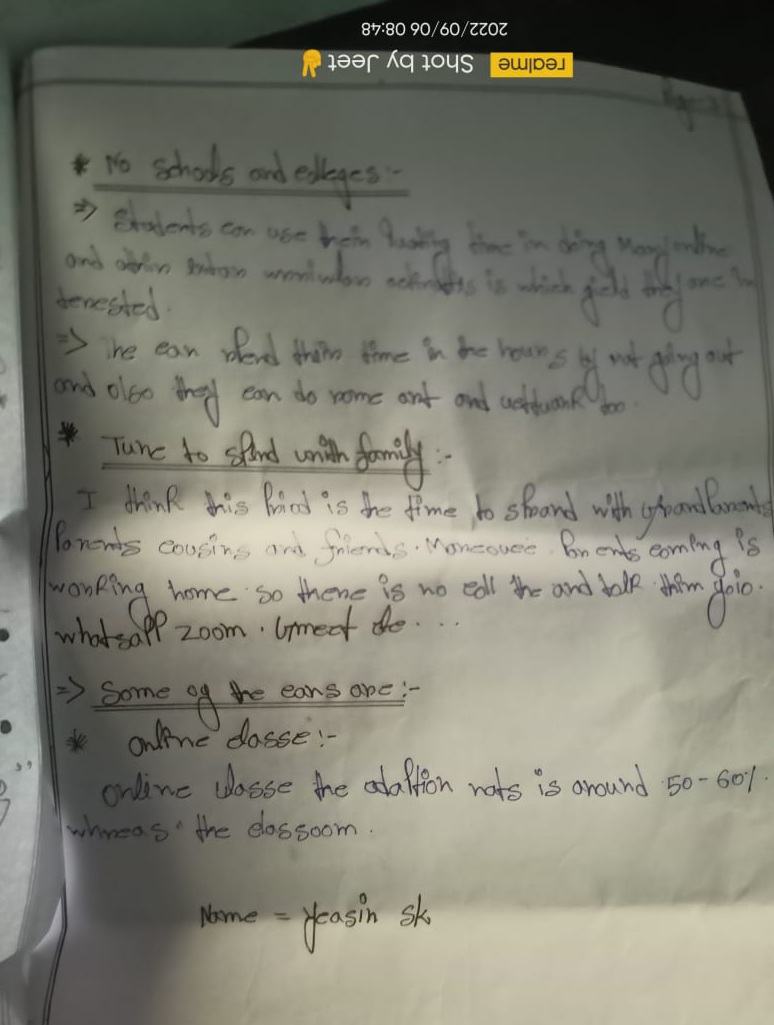 2022/09/06 08:48
realme Shot by Jeet
* No schools and colleges:-
=> Students can use their quality time in doing many online
and is which they are in
terested.
=> The can spend their time in the hours by not going out
and also they can do some art and too.
* Time to spend with family:-
I think this Priod is the time to spand with grandParents
Parents cousins and friends. Moreover Parents coming is
working home so there is no coll the and talk them
whatsapp zoom. Gmeet
=> Some og the cans are:-
* online classe:-
online classe the is around 50-60%.
whreas the classoom.
Name = Yeasin Sk